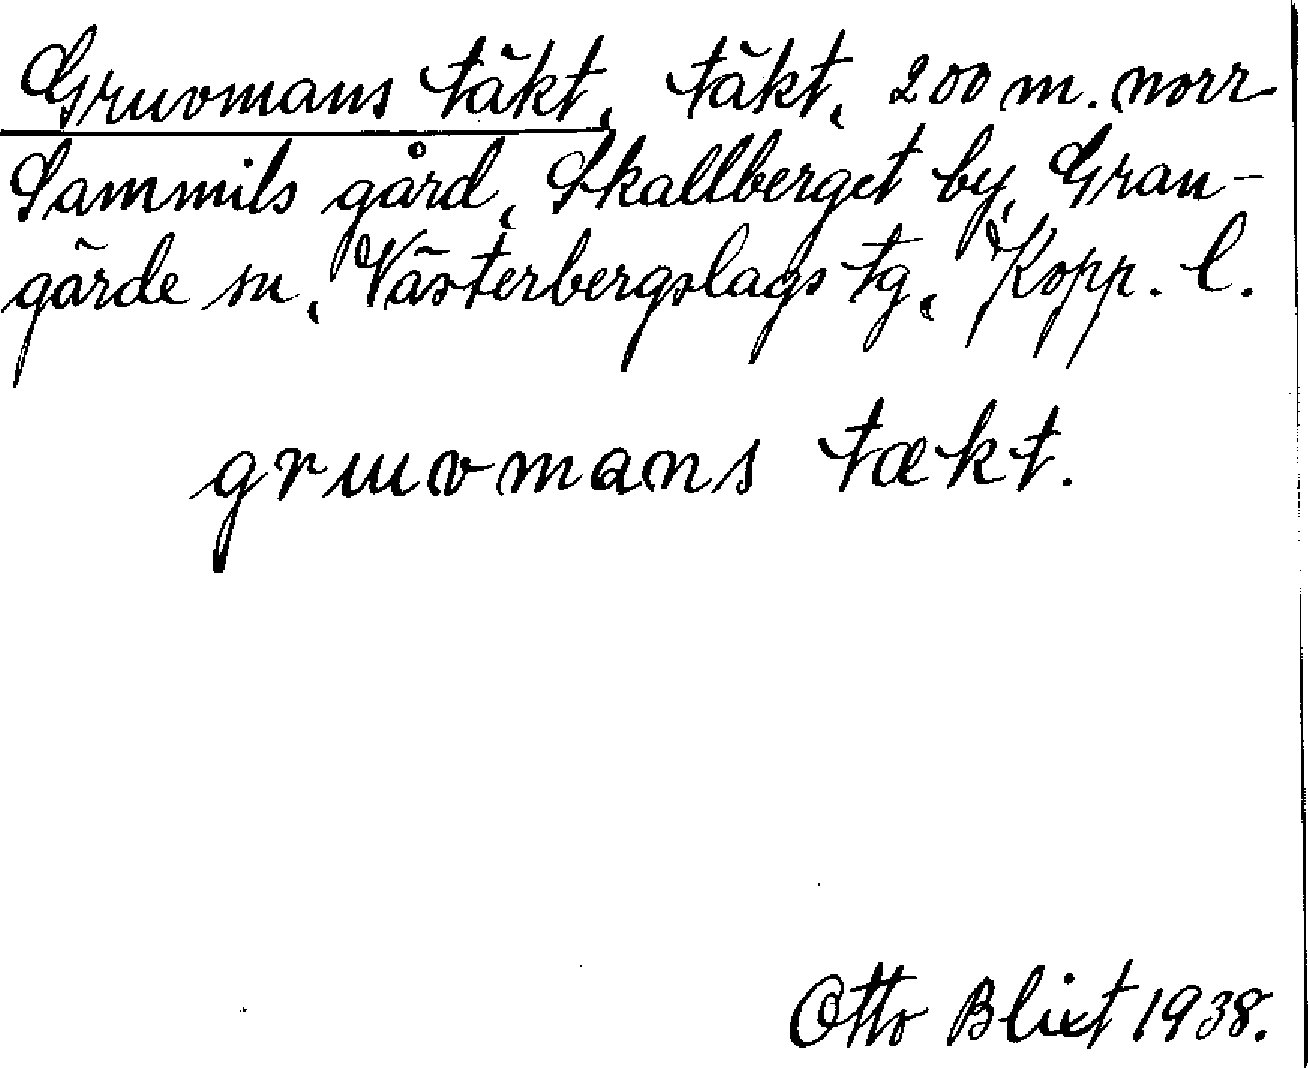 Gruvmans täkt, täkt, 200 m. norr
Sammils gård, Skallberget by, Gran-
gärde sn, Västerbergslags tg, Kopp. l.
gruvmans tækt.
Otto Blixt 1938.